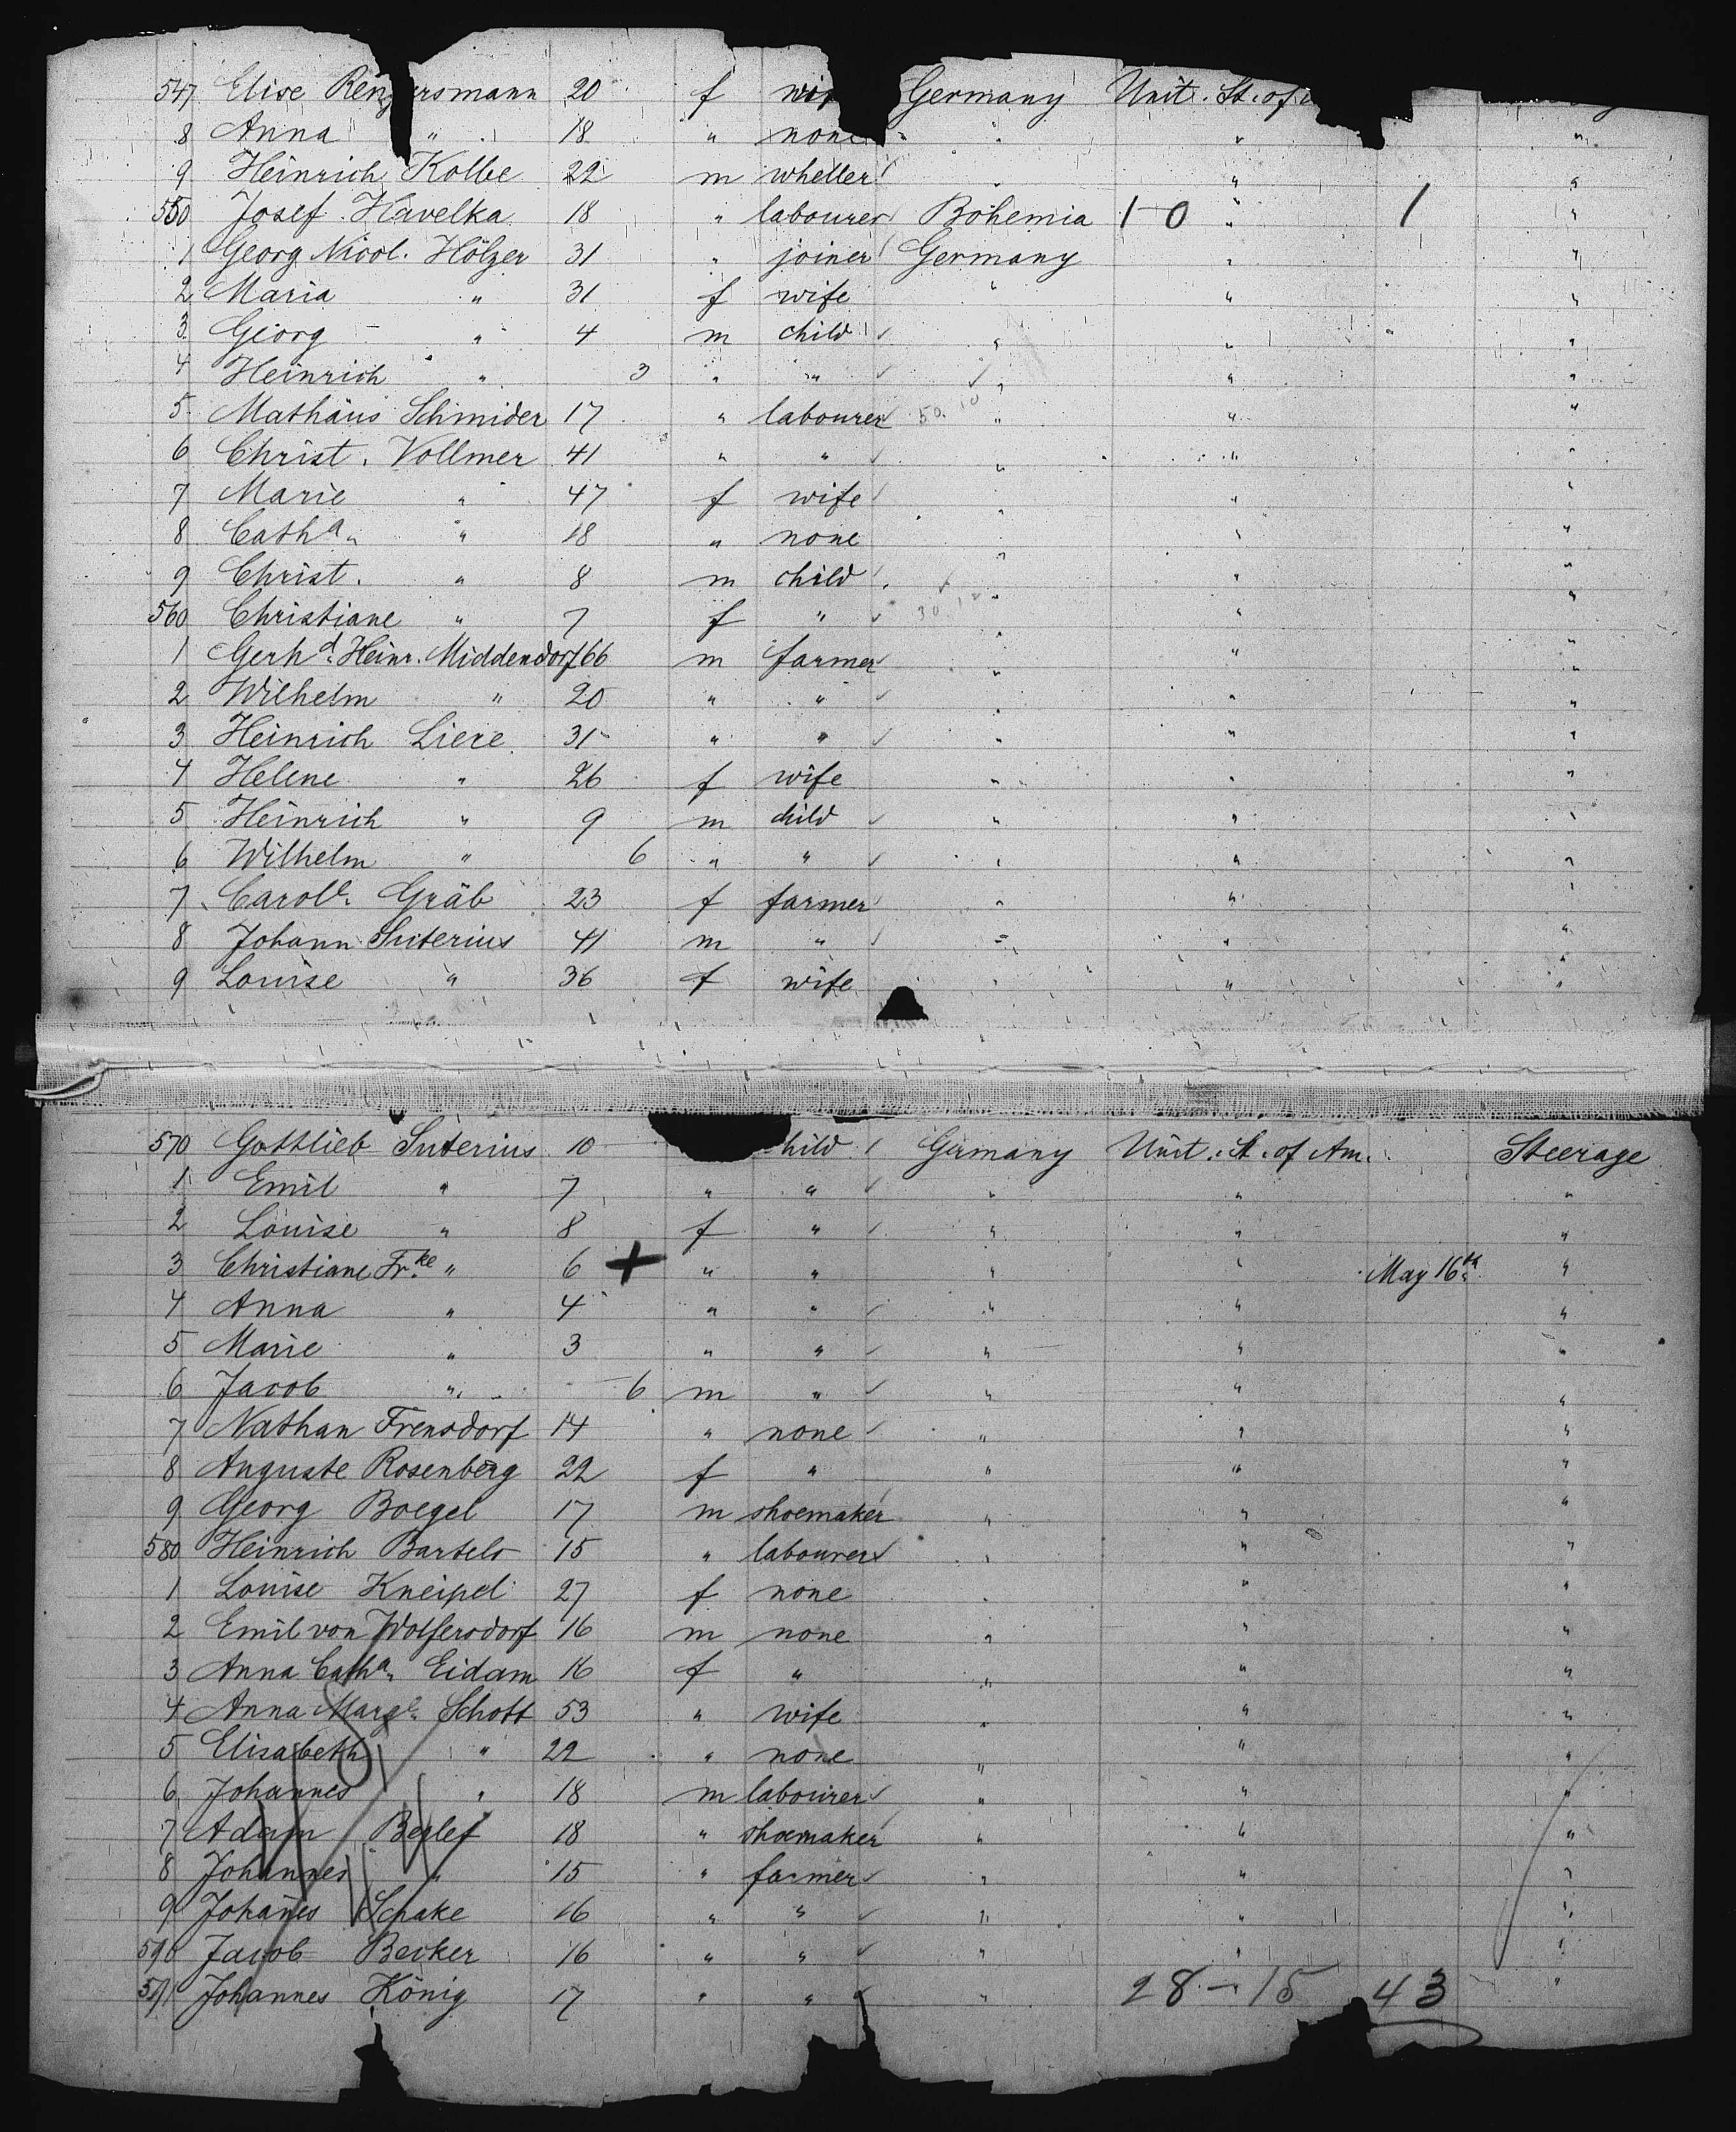 547 Elise Ren ersmann 20 f Germany Unit. St. of
8 Anna " 18 " none " " " "
9 Heinrich Kolbe 22 m wheller " " "
550 Josef Havelka 18 " labourer Bohemia 1-0 " 1 "
1 Georg Nicol. Hölzer 31 " joiner Germany " "
2 Maria " 31 f wife " " "
3 Georg " 4 m child " " "
4 Heinrich " 3 " " " " "
5 Mathäus Schmider 17 " labourer 50. 10 " " "
6 Christ. Vollmer 41 " " " " "
7 Marie " 47 f wife " " "
8 Catha. " 18 " none " " "
9 Christ. " 8 m child " " "
560 Christiane " 7 f " " " "
1 Gerhd. Heinr. Middendorf 66 m farmer " " "
2 Wilhelm " 20 " " " " "
3 Heinrich Liere 31 " " " " "
4 Helene " 26 f wife " " "
5 Heinrich " 9 m child " " "
6 Wilhelm " 6 " " " " "
7 Carole. Gräb 23 f farmer " " "
8 Johann Suterius 41 m " " " "
9 Louise " 36 f wife " " "
570 Gottlieb Suterius 10 hild Germany Unit. St. of Am. Steerage
1 Emil " 7 " " " " "
2 Louise " 8 f " " " "
3 Christiane Frke. " 6 + " " " " May 16th "
4 Anna " 4 " " " " "
5 Marie " 3 " " " " "
6 Jacob " 6 m " " " "
7 Nathan Frensdorf 14 " none " " "
8 Auguste Rosenberg 22 f " " " "
9 Georg Boegel 17 m shoemaker " " "
580 Heinrich Bartels 15 " labourer " " "
1 Louise Kneipel 27 f none " " "
2 Emil von Wolfersdorf 16 m none " " "
3 Anna Catha. Eidam 16 f " " " "
4 Anna Marge. Schott 53 " wife " " "
5 Elisabeth " 22 " none " " "
6 Johannes " 18 m labourer " " "
7 Adam 18 " shoemaker " " "
8 Johannes " 15 " farmer " " "
9 Johan̄es Schake 16 " " " " "
590 Jacob Becker 16 " " " " "
591 Johannes König 17 " " " 28-15 43 "